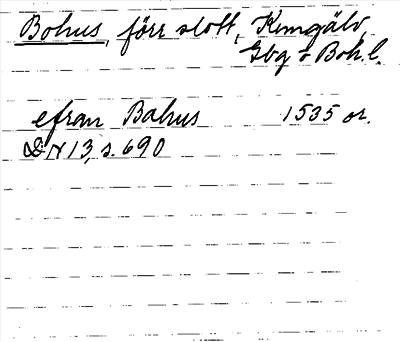 Bohus, förr slott, Kungälv,
Gbg o Boh. l.
efran Bahus 1535 or.
DN 13, s. 690